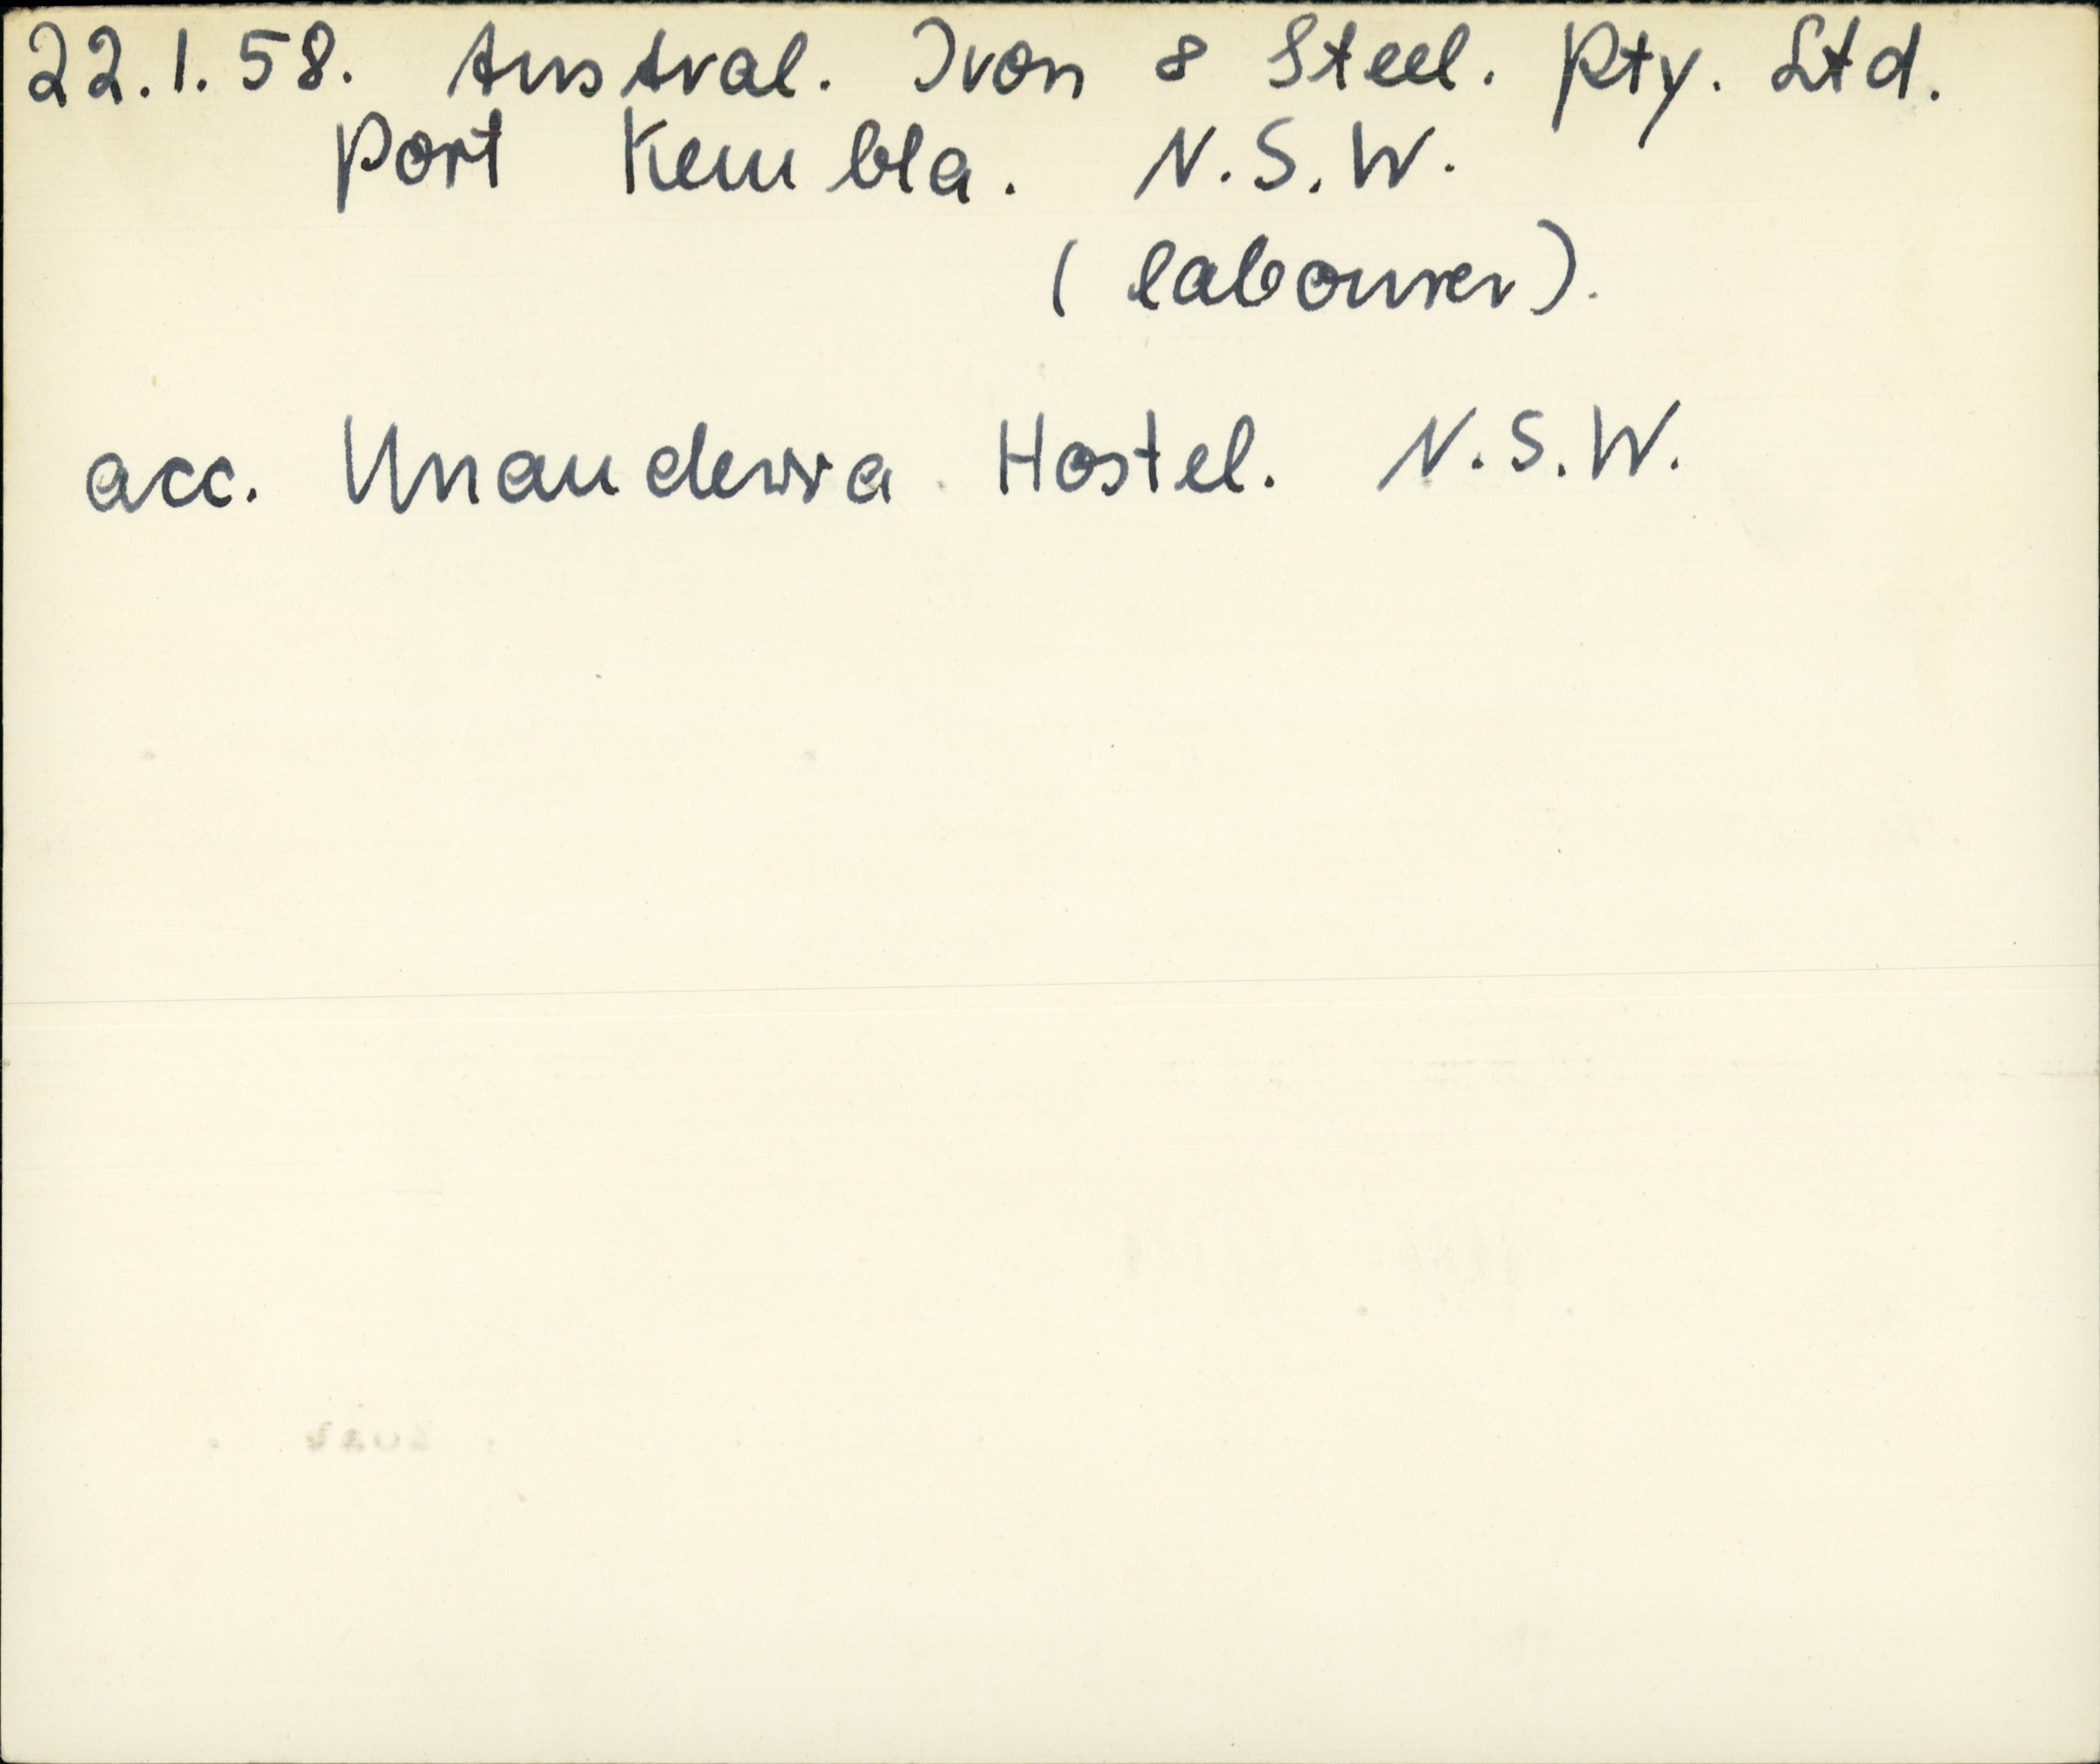 22.1.58. Austral. Iron & Steel. Pty. Ltd.
Port Kembla. N.S.W.
(labourer).
acc. Unanderra Hostel. N.S.W.